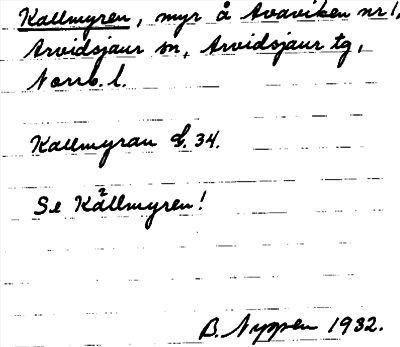 Kallmyren, myr å Avaviken nr 1,
Arvidsjaur sn, Arvidsjaur tg,
Norrb. l.
Kallmyran d. 34.
Se Kållmyren!
B. Nyppen 1932.